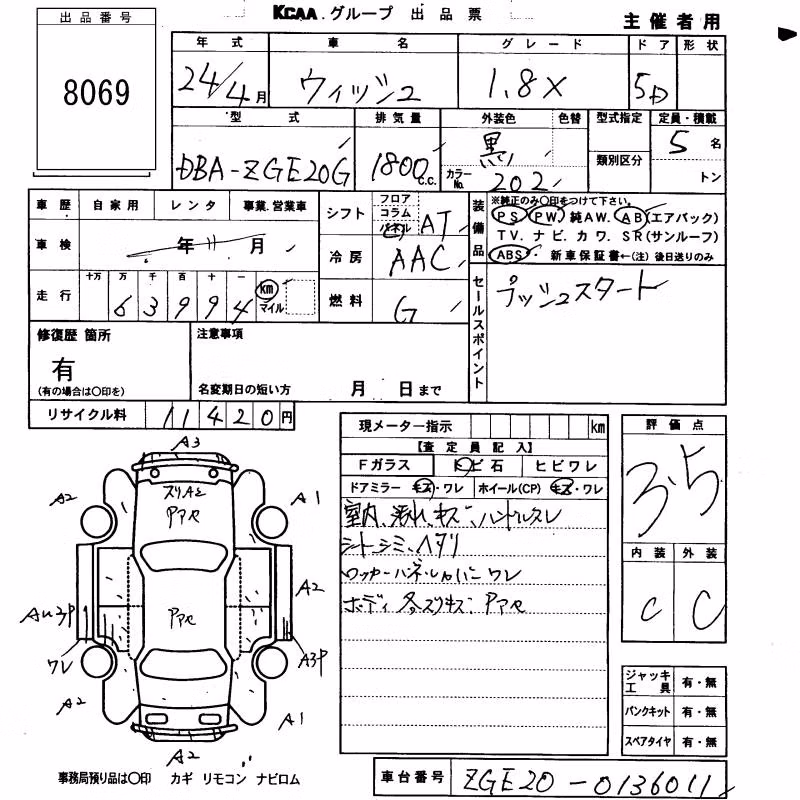 KCAA.グループ 出品票
主催者用
出品番号
8069
年式 車名 グレード ドア 形状
24/4月 ウィッシュ 1.8X 5D
型式 排気量 外装色 色替 型式指定 定員・積載
DBA-ZGE20G 1800c.c. 黒 カラーNo. 202 類別区分 5名
トン
車歴 自家用 レンタ 事業.営業車
車検 年 11月
走行 十万 万 千 百 十 一
63994 km マイル
シフト フロア コラム パネル AT
冷房 AAC
燃料 G
装備品 ※純正のみ○印をつけて下さい。
PS PW 純AW. AB(エアバック)
TV. ナビ. カワ. SR(サンルーフ)
ABS・新車保証書←(注) 後日送りのみ
セールスポイント プッシュスタート
修復歴 箇所
有
(有の場合は○印を)
注意事項
名変期日の短い方 月 日まで
リサイクル料 11420円
現メーター指示 km
【査定員記入】
Fガラス トビ石 ヒビワレ
ドアミラー キズ・ワレ ホイール(CP) キズ・ワレ
室内、汚れ、キズ、ハンドルスレ
シートシミ、ヘタリ
ロッカーパネルカバーワレ
ボディ 各スリキズ Pアセ
評価点
3.5
内装 外装
C C
ジャッキ工具 有・無
パンクキット 有・無
スペアタイヤ 有・無
A3
A2
A1
Pアセ
A2
Pアセ
ワレ
A3P
A2
A1
A2
事務局預り品は○印 カギ リモコン ナビロム
車台番号 ZGE20-0136011